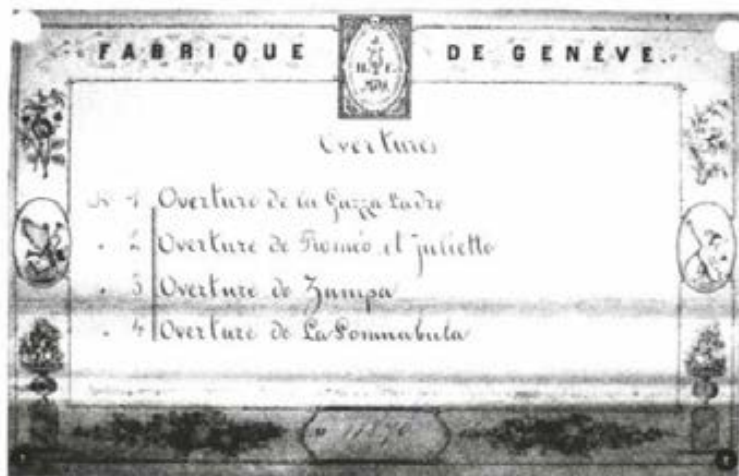 FABRIQUE DE GENÈVE.
Overtures
Nº 1 Overture de la Gazza Ladro
" 2 Overture de Roméo et julietto
" 3 Overture de Zampa
" 4 Overture de La Somnabula